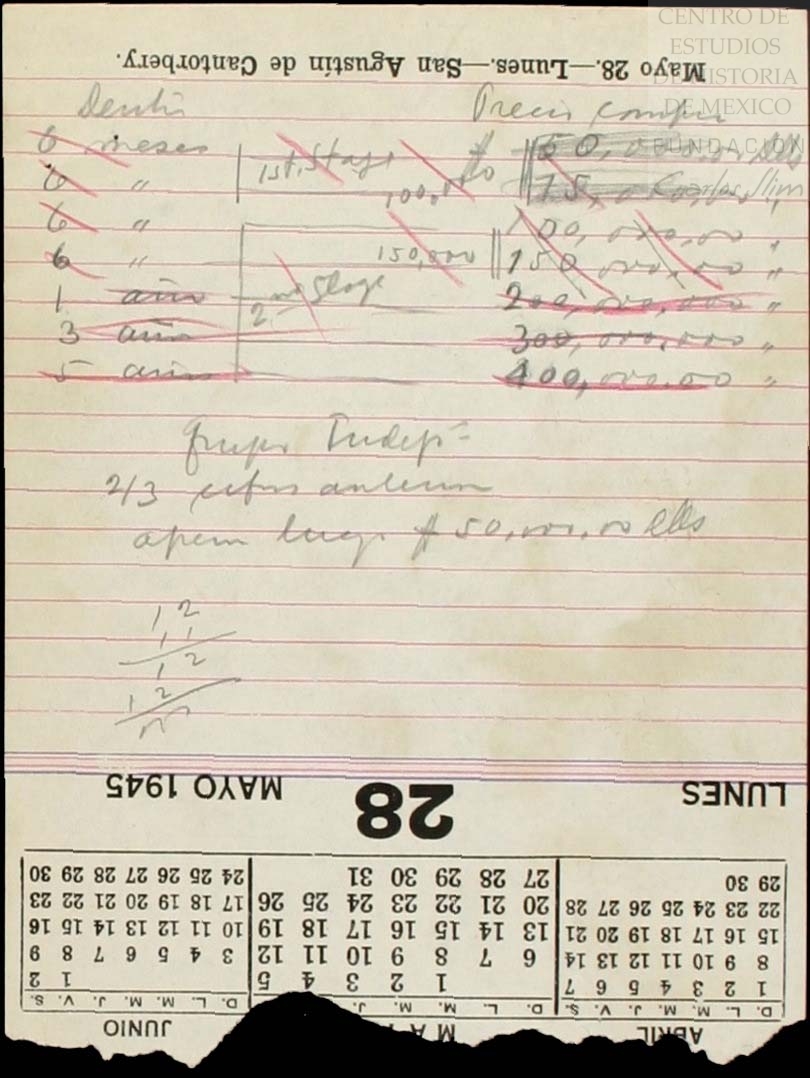 CENTRO DE
ESTUDIOS
DE HISTORIA
DE MEXICO
FUNDACIÓN
Carlos Slim
Mayo 28.—Lunes.—San Agustín de Cantorbery.
Precio
6 meses 1st. Stage 100,0 50,000,000.00 Dlls
6 " 75,000,000 "
6 " 100,000,000.00 "
6 " 150,000 150,000,000.00 "
1 año 2nd Stage 200,000,000.00 "
3 años 300,000,000 "
5 años 400,000,000.00 "
Grupo Indep
2/3
$50,000,000.00 Dlls
1 2
1 1
1 2
1 2
LUNES 28 MAYO 1945
ABRIL
D. L. M. M. J. V. S.
1 2 3 4 5 6 7
8 9 10 11 12 13 14
15 16 17 18 19 20 21
22 23 24 25 26 27 28
29 30
MA
D. L. M. M. J.
1 2 3 4 5
6 7 8 9 10 11 12
13 14 15 16 17 18 19
20 21 22 23 24 25 26
27 28 29 30 31
JUNIO
D. L. M. M. J. V. S.
1 2
3 4 5 6 7 8 9
10 11 12 13 14 15 16
17 18 19 20 21 22 23
24 25 26 27 28 29 30